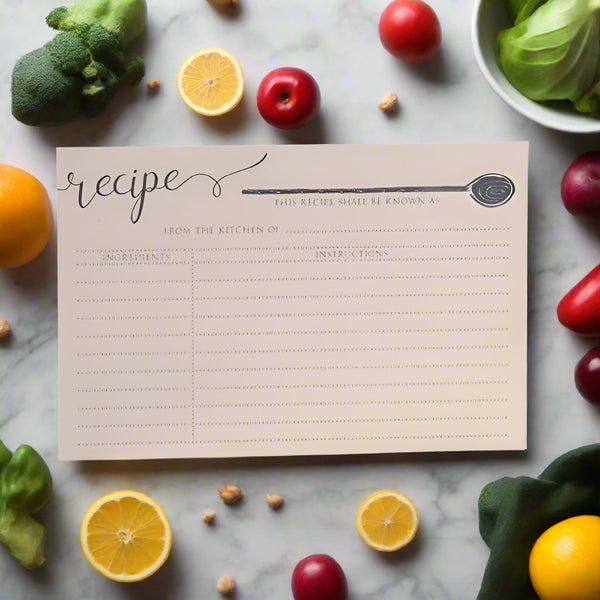 recipe
THIS RECIPE SHALL BE KNOWN AS
FROM THE KITCHEN OF
INGREDIENTS
INSTRUCTIONS